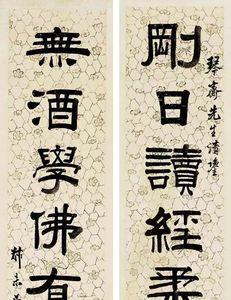 琴齋先生清
剛日讀經柔
無酒學佛有